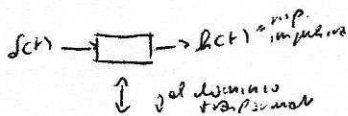 δ(t) → → h(t) = risp.
impulsiva
↕ nel dominio
trasformato